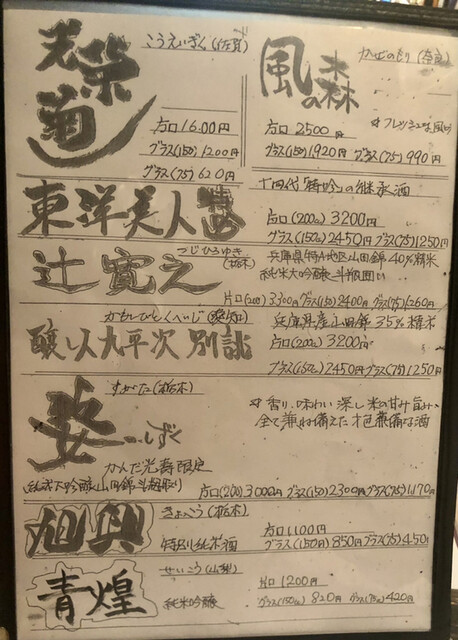 光栄菊
こうえいぎく(佐賀)
片口 1600円
グラス(150) 1200円
グラス(75) 620円
風の森
かぜのもり(奈良)
片口 2500円
グラス(150) 1920円 グラス(75) 990円
東洋美人
十四代「特吟」の継承酒
片口(200cc) 3200円
グラス(150cc) 2450円 グラス(75) 1250円
辻寛之
つじひろゆき(栃木)
兵庫県特A地区山田錦40%精米
純米大吟醸 斗瓶囲い
片口(200) 3300円 グラス(150) 2400円 グラス(75) 1260円
かもしびとくへいじ(愛知)
醸し人九平次 別誂
兵庫県産山田錦35%精米
片口(200cc) 3200円
グラス(150cc) 2450円 グラス(75) 1250
姿 しずく
すがた(栃木)
かんだ光寿限定
☆香り、味わい深し米の甘み旨み、
全て兼ね備えた才色兼備な酒
片口(200) 3000円 グラス(150) 2300円 グラス(75) 1170円
旭興
きょくこう(栃木)
特別純米酒
片口 1100円
グラス(150円) 850円 グラス(75) 450円
青煌
せいこう(山梨)
純米吟醸
片口 1200円
グラス(150cc) 820円 グラス(75cc) 420円